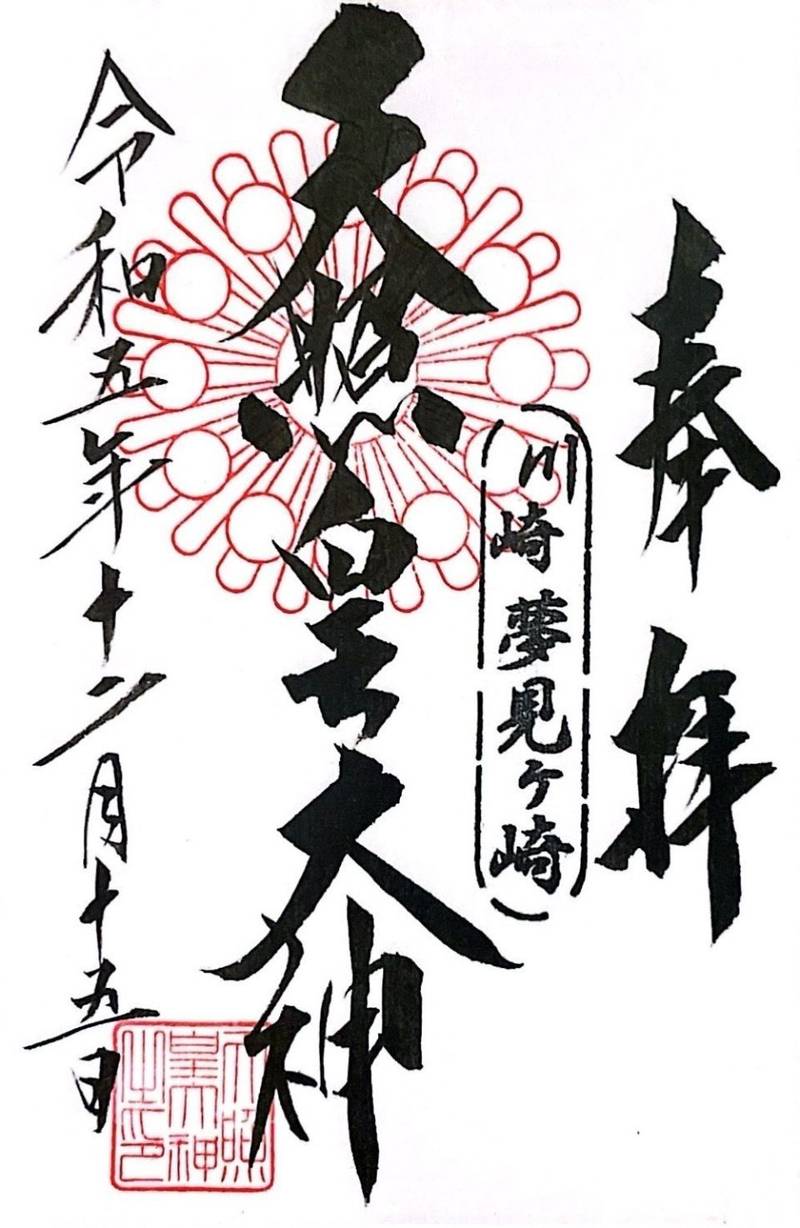 奉拝
川崎夢見ヶ崎
天照皇大神
令和五年十二月十五日
天照
皇大神
之印